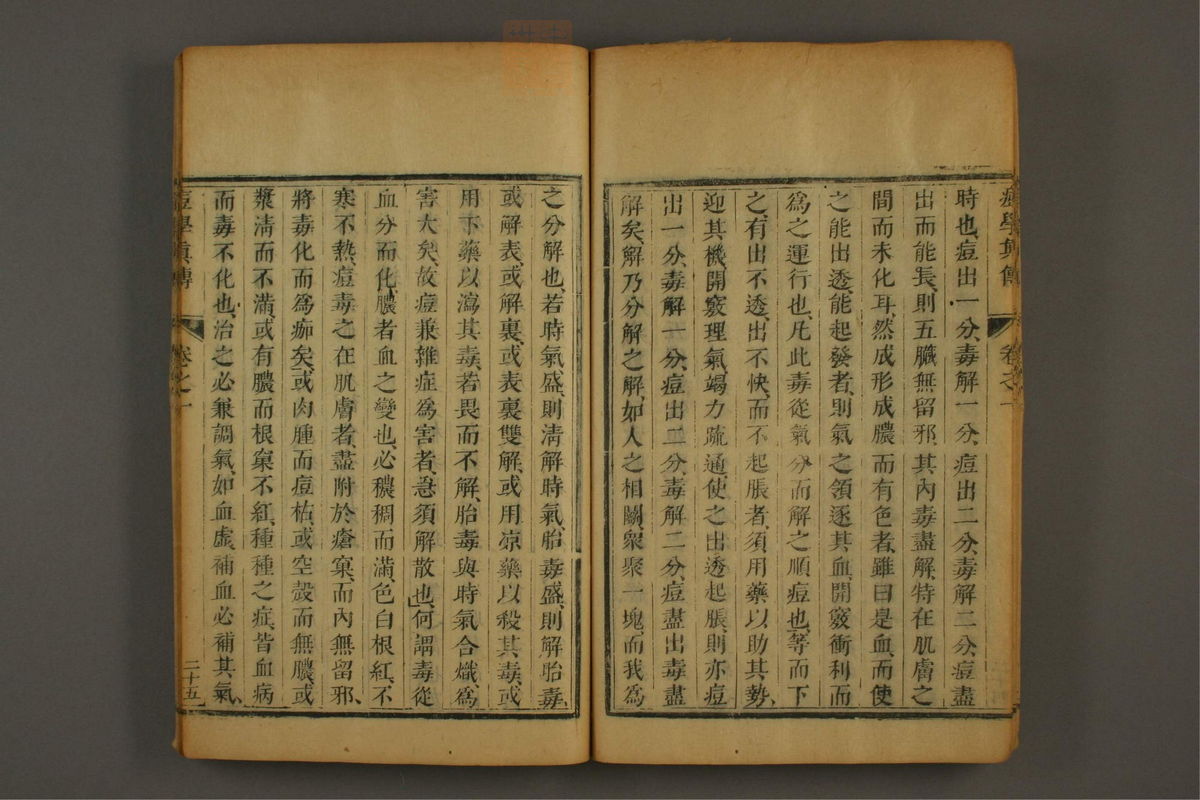 痘學眞傳 卷之一
時也、痘出一分、毒解一分、痘出二分、毒解二分、痘盡
出而能長、則五臟無留邪、其內毒盡解、特在肌膚之
間而未化耳、然成形成膿而有色者、雖曰是血、而使
之能出透、能起發者、則氣之領逐其血、開竅衝利而
爲之運行也、凡此毒從氣分而解之順痘也、等而下
之、有出不透、出不快、而不起脹者、須用藥以助其勢、
迎其機、開竅理氣、竭力疏通、使之出透起脹、則亦痘
出一分、毒解一分、痘出二分、毒解二分、痘盡出毒盡
解矣、解乃分解之解、如人之相鬭、衆聚一塊、而我爲
之分解也、若時氣盛、則淸解時氣、胎毒盛、則解胎毒、
或解表、或解裏、或表裏雙解、或用凉藥以殺其毒、或
用下藥以瀉其毒、若畏而不解、胎毒與時氣合熾、爲
害大矣、故痘兼雜症爲害者、急須解散也、何謂毒從
血分而化、膿者血之變也、必穠稠而滿、色白根紅、不
寒不熱、痘毒之在肌膚者、盡附於瘡窠、而內無留邪、
將毒化而爲痂矣、或肉腫而痘枯、或空殼而無膿、或
漿淸而不滿、或有膿而根窠不紅、種種之症、皆血病
而毒不化也、治之必兼調氣、如血虛、補血必補其氣、
痘學眞傳 卷之一 二十五